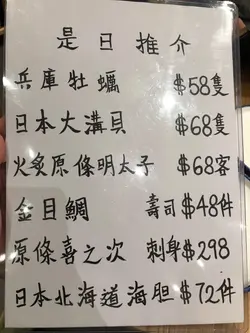 是日推介
兵庫牡蠣 $58隻
日本大溝貝 $68隻
火炙原條明太子 $68客
金目鯛 壽司$48件
原條喜之次 刺身$298
日本北海道海胆$72件